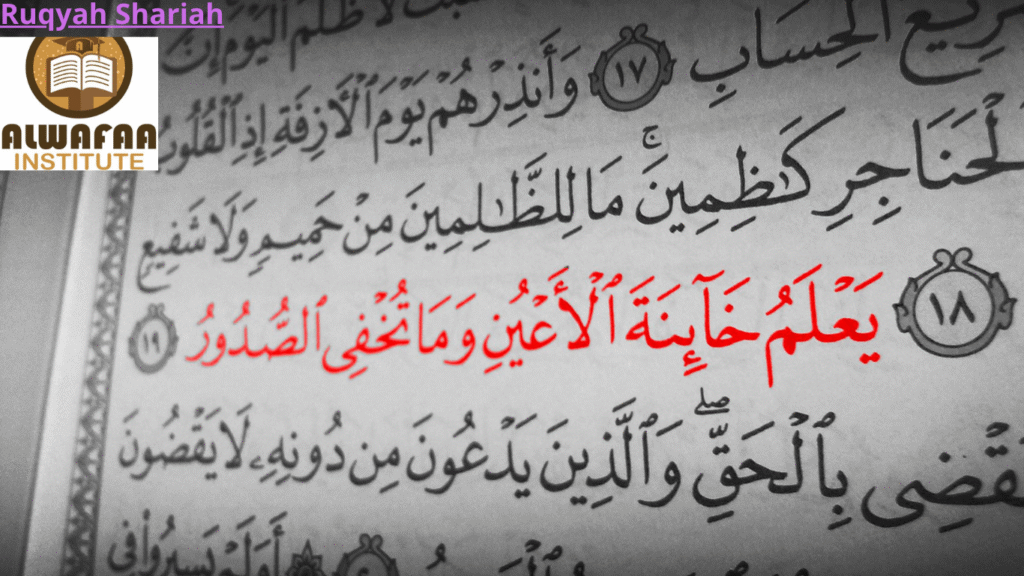 Ruqyah Shariah
ALWAFAA
INSTITUTE
ظُلْمَ ٱلْيَوْمَ إِنَّ
ٱلْحِسَابِ ١٧ وَأَنذِرْهُمْ يَوْمَ ٱلْـَٔازِفَةِ إِذِ ٱلْقُلُوبُ
ٱلْحَنَاجِرِ كَـٰظِمِينَ ۚ مَا لِلظَّـٰلِمِينَ مِنْ حَمِيمٍ وَلَا شَفِيعٍ
١٨ يَعْلَمُ خَآئِنَةَ ٱلْأَعْيُنِ وَمَا تُخْفِى ٱلصُّدُورُ ١٩
يَقْضِى بِٱلْحَقِّ ۖ وَٱلَّذِينَ يَدْعُونَ مِن دُونِهِۦ لَا يَقْضُونَ
أَوَلَمْ يَسِيرُوا۟ فِى